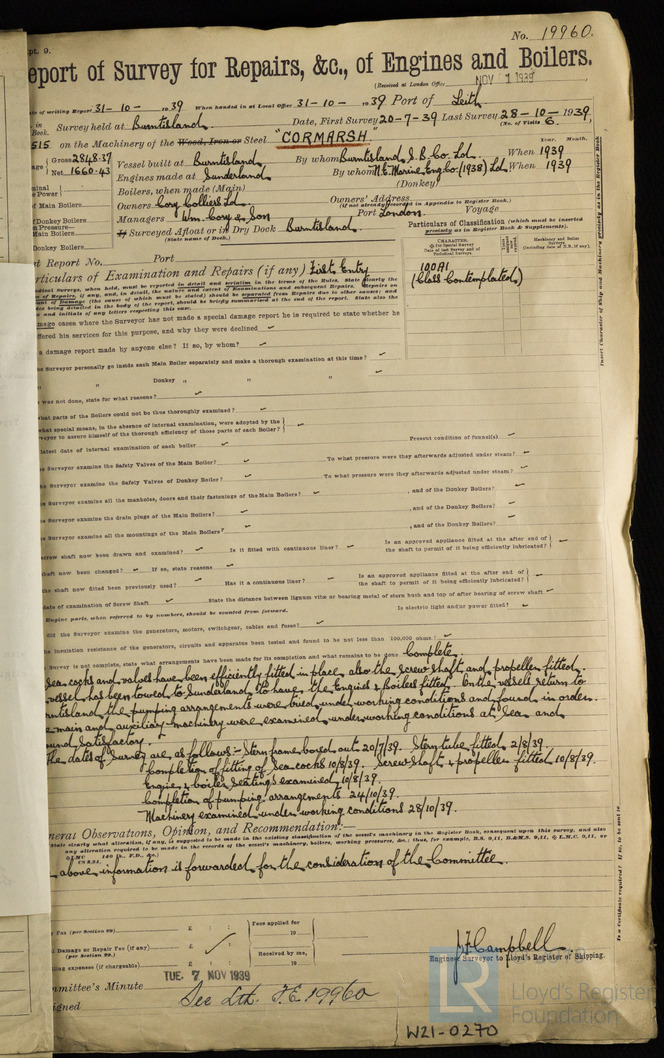 pt. 9.
No. 19960.
eport of Survey for Repairs, &c., of Engines and Boilers.
(Received at London Office NOV 1 1939
te of writing Report 31-10-1939 When handed in at Local Office 31-10-1939 Port of Leith
in Book. Survey held at Burntisland. Date, First Survey 20-7-39 Last Survey 28-10-1939
(No. of Visits 6.
515 on the Machinery of the Wood, Iron or Steel "CORMARSH"
Gross 2848.37 Vessel built at Burntisland, By whom Burntisland S.B. Co. Ld. When Year. Month. 1939
Net 1660.43 Engines made at Sunderland By whom N.E. Marine Eng. Co (1938) Ld When 1939
Boilers, when made (Main) (Donkey)
of Main Boilers Owners Cory Colliers Ld. Owners' Address
(if not already recorded in Appendix to Register Book.)
of Donkey Boilers Managers Wm. Cory & Son Port London. Voyage
Main Boilers If Surveyed Afloat or in Dry Dock Burntisland.
(State name of Dock.)
Donkey Boilers
Particulars of Classification (which must be inserted precisely as in Register Book & Supplements).
t Report No. Port
CHARACTER.
Machinery and Boiler Surveys
100A1
(Class Contemplated)
Insert Character of Ship and Machinery precisely as in the Register Book
rticulars of Examination and Repairs (if any) First Entry
amage cases where the Surveyor has not made a special damage report he is required to state whether he
ffered his services for this purpose, and why they were declined
a damage report made by anyone else? If so, by whom?
he Surveyor personally go inside each Main Boiler separately and make a thorough examination at this time?
" " Donkey " " "
was not done, state for what reasons?
hat parts of the Boilers could not be thus thoroughly examined?
hat special means, in the absence of internal examination, were adopted by the
veyor to assure himself of the thorough efficiency of those parts of each Boiler?
latest date of internal examination of each boiler Present condition of funnel(s)
e Surveyor examine the Safety Valves of the Main Boiler? To what pressure were they afterwards adjusted under steam?
he Surveyor examine the Safety Valves of Donkey Boiler? To what pressure were they afterwards adjusted under steam?
e Surveyor examine all the manholes, doors and their fastenings of the Main Boilers? , and of the Donkey Boilers?
e Surveyor examine the drain plugs of the Main Boilers? , and of the Donkey Boilers?
e Surveyor examine all the mountings of the Main Boilers? , and of the Donkey Boilers?
crew shaft now been drawn and examined? Is it fitted with continuous liner? Is an approved appliance fitted at the after end of the shaft to permit of it being efficiently lubricated?
haft now been changed? If so, state reasons
the shaft now fitted been previously used? Has it a continuous liner? Is an approved appliance fitted at the after end of the shaft to permit of it being efficiently lubricated?
date of examination of Screw Shaft State the distance between lignum vitæ or bearing metal of stern bush and top of after bearing of screw shaft
Engine parts, when referred to by numbers, should be counted from forward. Is electric light and/or power fitted?
did the Surveyor examine the generators, motors, switchgear, cables and fuses?
he insulation resistance of the generators, circuits and apparatus been tested and found to be not less than 100,000 ohms?
Survey is not complete, state what arrangements have been made for its completion and what remains to be done Complete.
Sea cocks and valves have been efficiently fitted in place, also the screw shaft and propeller fitted.
vessel has been towed to Sunderland to have the Engines & boilers fitted. On the vessels return to
rntisland the pumping arrangements were tried under working conditions and found in order.
e main and auxiliary machinery were examined under working conditions at Sea and
und Satisfactory.
The dates of Survey are as follows:- Stern frame bored out 20/7/39. Stern tube fitted 2/8/39.
Completion of fitting of Sea cocks 10/8/39. Screw shaft & propeller fitted 10/8/39.
Engine & boiler Seatings examined 10/8/39.
Completion of pumping arrangements 24/10/39.
Machinery examined under working conditions 28/10/39.
neral Observations, Opinion, and Recommendation:—
above information is forwarded for the consideration of the Committee.
Is a Certificate required? If so, to be sent to
y Fee (per Section 29) £ : : Fees applied for
19
Damage or Repair Fee (if any) £ : :
(per Section 29.)
Received by me,
elling expenses (if chargeable) £ : : 19
J. F. Campbell
Engineer Surveyor to Lloyd's Register of Shipping.
mmittee's Minute TUE. 7 NOV 1939
signed See Lth. F.E. 19960
LR Lloyd's Register Foundation
W21-0270